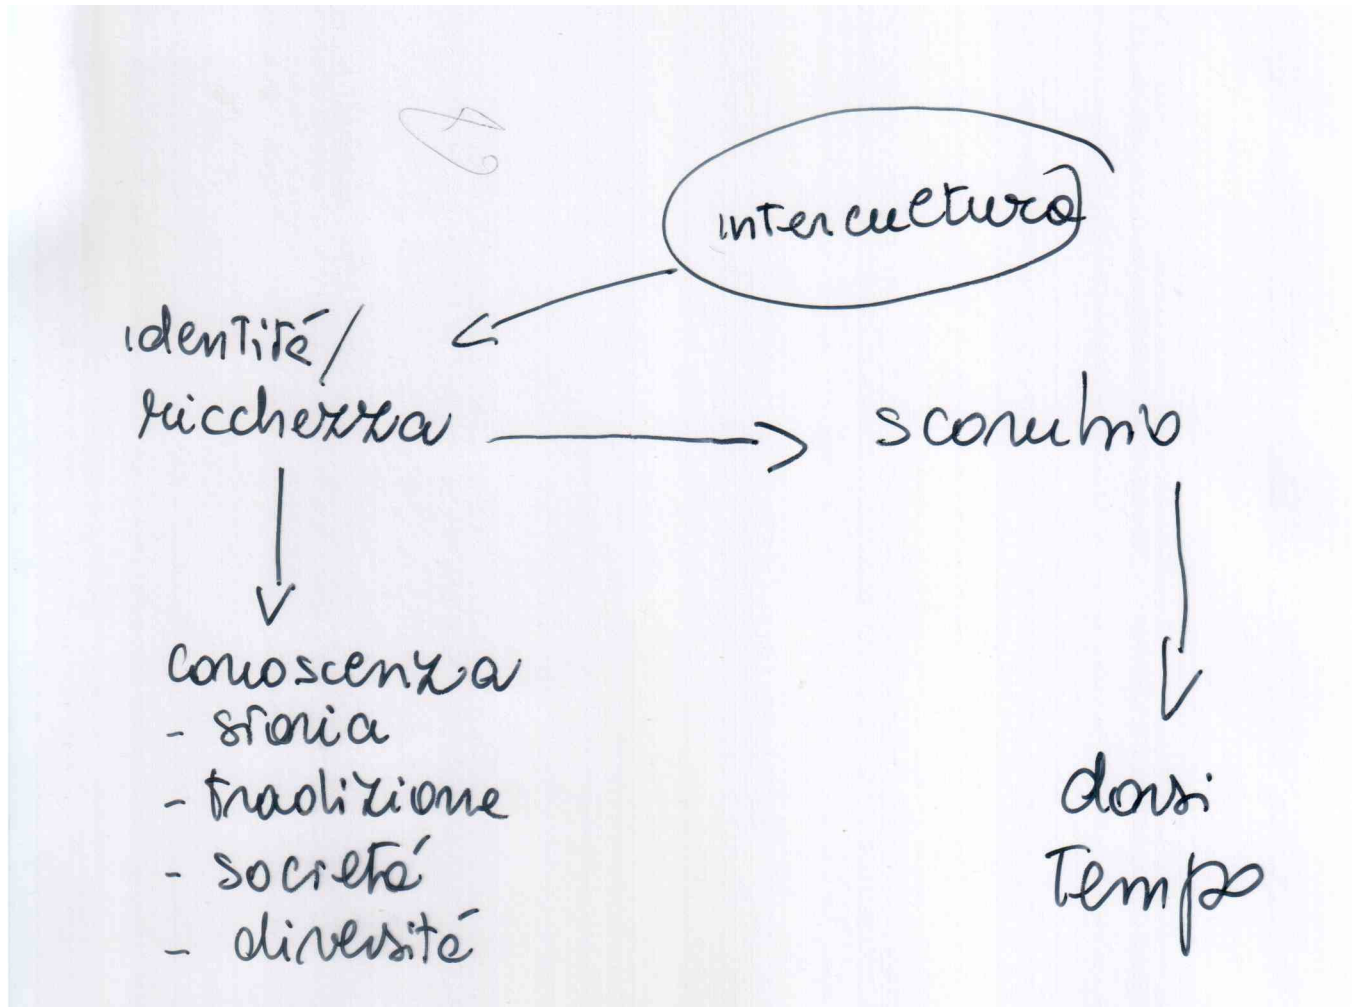 intercultura
identità/
ricchezza
scambio
conoscenza
- storia
- tradizione
- società
- diversità
darsi
Tempo